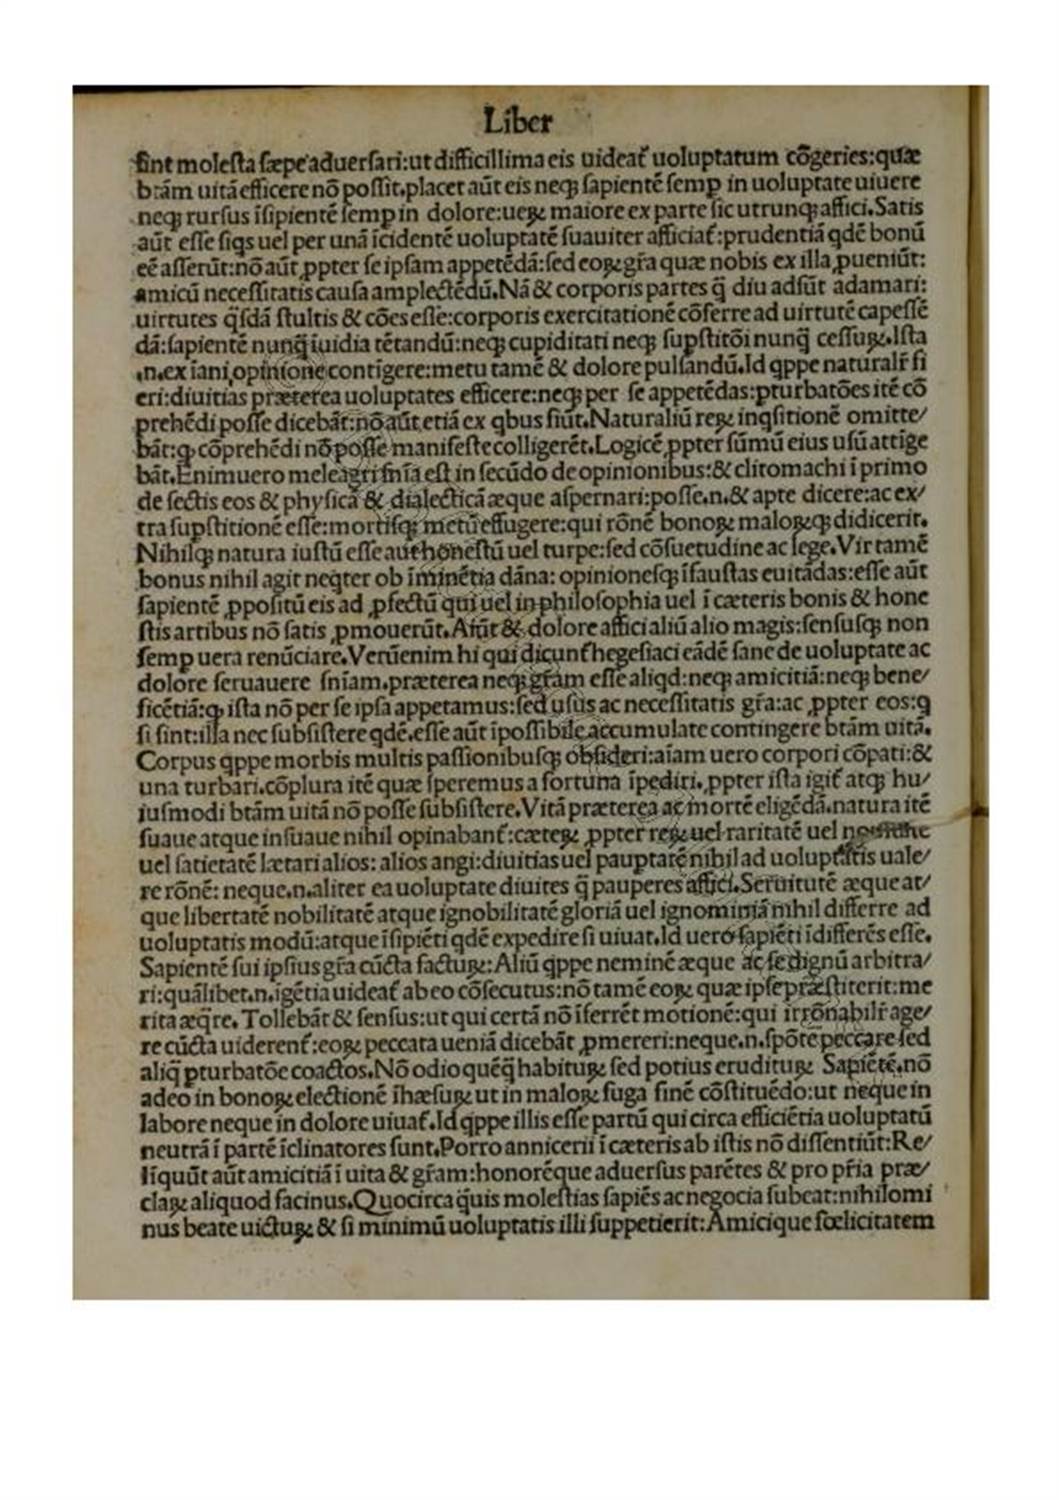 Liber
ſint moleſta ſæpe aduerſari:ut difficillima eis uideat᷑ uoluptatum cõgeries:quæ
btãm uitã efficere nõ poſſit.placet aũt eis neqꝫ ſapientẽ ſemp in uoluptate uiuere
neqꝫ rurſus ĩſipientẽ ſemp in dolore:ueꝝ maiore ex parte ſic utrunqꝫ affici.Satis
aũt eſſe ſiqs uel per unã ĩcidentẽ uoluptatẽ ſuauiter afficiat᷑:prudentiã qdẽ bonũ
eẽ aſſerũt:nõ aũt ꝓpter ſe ipſam appetẽdã:ſed eoꝝ gr̃a quæ nobis ex illa ꝓueniũt:
amicũ neceſſitatis cauſa amplectẽdũ.Nã & corporis partes q̃ diu adſũt adamari:
uirtutes q̃ſdã ſtultis & cões eſſe:corporis exercitationẽ cõferre ad uirtutẽ capeſſẽ
dã:ſapientẽ nunq̃ ĩuidia tẽtandũ:neqꝫ cupiditati neqꝫ ſupſtitõi nunq̃ ceſſuꝝ.Iſta
.n.ex ĩani opinione contĩgere:metu tamẽ & dolore pulſandũ.Id qppe naturalr̃ fi
eri:diuitias præterea uoluptates efficere:neqꝫ per ſe appetẽdas:pturbatões itẽ cõ
prehẽdi poſſe dicebãt:nõ aũt etiã ex qbus fiũt.Naturaliũ reꝝ inqſitionẽ omitte/
bãt:ꝙ cõprehẽdi nõ poſſe manifeſte colligerẽt.Logicẽ ꝓpter ſũmũ eius uſũ attĩge
bãt.Enimuero meleagri ſnĩa eſt in ſecũdo de opinionibus:& clitomachi ĩ primo
de ſectis eos & phyſicã & dialecticã æque aſpernari:poſſe.n.& apte dicere:ac ex/
tra ſupſtitionẽ eſſe:mortiſqꝫ metũ effugere:qui rõnẽ bonoꝝ maloꝝqꝫ didicerit.
Nihilqꝫ natura iuſtũ eſſe aut honeſtũ uel turpe:ſed cõſuetudine ac lege.Vir tamẽ
bonus nihil agit neqter ob ĩminẽtia dãna: opinioneſqꝫ ĩfauſtas euitãdas:eſſe aũt
ſapientẽ ꝓpoſitũ eis ad ꝓfectũ qui uel in philoſophia uel ĩ cæteris bonis & hone
ſtis artibus nõ ſatis ꝓmouerũt.Aiũt & dolore affici aliũ alio magis:ſenſuſqꝫ non
ſemp uera renũciare.Verũenim hi qui dicunt᷑ hegeſiaci eãdẽ ſane de uoluptate ac
dolore ſeruauere ſnĩam.præterea neqꝫ gr̃am eſſe aliqd:neqꝫ amicitiã:neqꝫ bene/
ficẽtiã:ꝙ iſta nõ per ſe ipſa appetamus:ſed uſus ac neceſſitatis gr̃a:ac ꝓpter eos:q
ſi ſint:illa nec ſubſiſtere qdẽ.eſſe aũt ĩpoſſibile accumulate contingere btãm uitã.
Corpus qppe morbis multis paſſionibuſqꝫ obſideri:aĩam uero corpori cõpati:&
una turbari.cõplura itẽ quæ ſperemus a fortuna ĩpediri.ꝓpter iſta igit᷑ atqꝫ hu/
iuſmodi btãm uitã nõ poſſe ſubſiſtere.Vitã præterea ac mortẽ eligẽdã.natura itẽ
ſuaue atque inſuaue nihil opinabant᷑:cæteꝝ ꝓpter reꝝ uel raritatẽ uel
uel ſatietatẽ lætari alios: alios angi:diuitias uel pauptatẽ nihil ad uoluptatis uale/
re rõnẽ: neque.n.aliter ea uoluptate diuites q̃ pauperes affici.Seruitutẽ æque at/
que libertatẽ nobilitatẽ atque ignobilitatẽ gloriã uel ignominiã nihil differre ad
uoluptatis modũ:atque ĩſipiẽti qdẽ expedire ſi uiuat.Id uero ſapiẽti ĩdifferẽs eſſe.
Sapientẽ ſui ipſius gr̃a cũcta factuꝝ:Aliũ qppe neminẽ æque ac ſe dignũ arbitra/
ri:quãlibet.n.ĩgẽtia uideat᷑ ab eo cõſecutus:nõ tamẽ eoꝝ quæ ipſe præſtiterit:me
rita æq̃re.Tollebãt & ſenſus:ut qui certã nõ ĩferrẽt motionẽ:qui irrõnabilr̃ age/
re cũcta uiderent᷑:eoꝝ peccata ueniã dicebãt ꝓmereri:neque.n.ſpõte peccare ſed
aliq̃ pturbatõe coactos.Nõ odio quẽq̃ habituꝝ ſed potius erudituꝝ Sapiẽtẽ.nõ
adeo in bonoꝝ electionẽ ĩhæſuꝝ ut in maloꝝ fuga finẽ cõſtituẽdo:ut neque in
labore neque in dolore uiuat᷑.Id qppe illis eſſe partũ qui circa efficiẽtia uoluptatũ
neutrã ĩ partẽ ĩclinatores ſunt.Porro annicerii ĩ cæteris ab iſtis nõ diſſentiũt:Re/
lĩquũt aũt amicitiã ĩ uita & gr̃am:honorẽque aduerſus parẽtes & pro pr̃ia præ/
claꝝ aliquod facinus.Quocirca q̃uis moleſtias ſapiẽs ac negocia ſubeat:nihilomi
nus beate uictuꝝ & ſi minimũ uoluptatis illi ſuppetierit:Amicique fœlicitatem